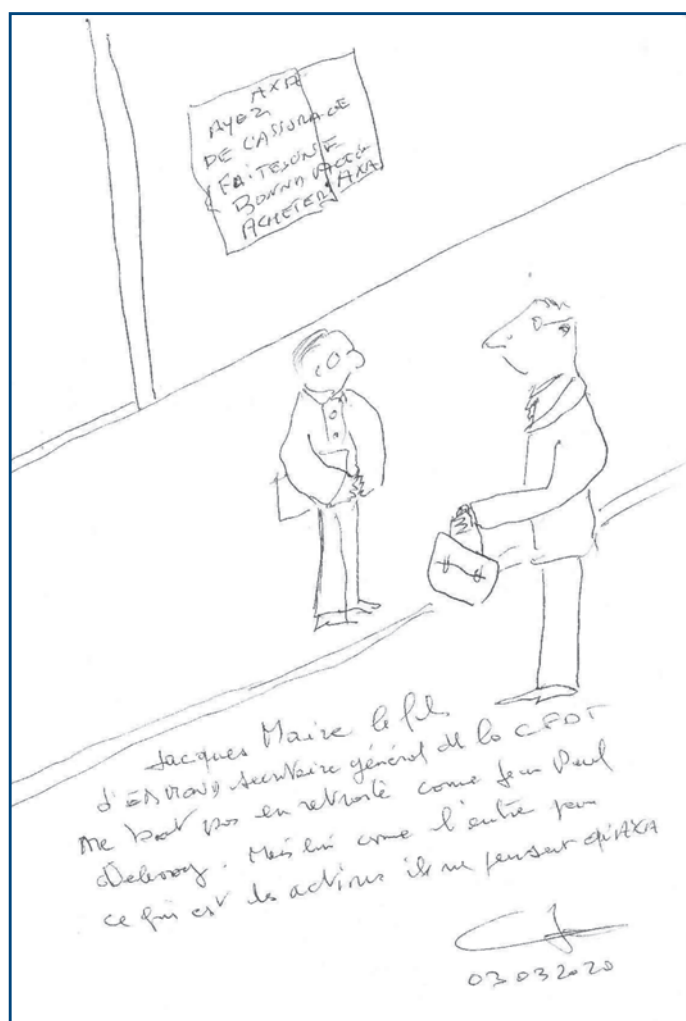 AXA
AYEZ
DE L'ASSURANCE
FAITES ONE
BONNE
ACHETER AXA
Jacques Maire le fils
d'EDMOND secrétaire général de la CFDT
ne bat pas en retraite comme Jean Paul
Delevoy. Mais lui comme l'autre pour
ce qui est des actions ils ne pensent qu'AXA
03 03 2020